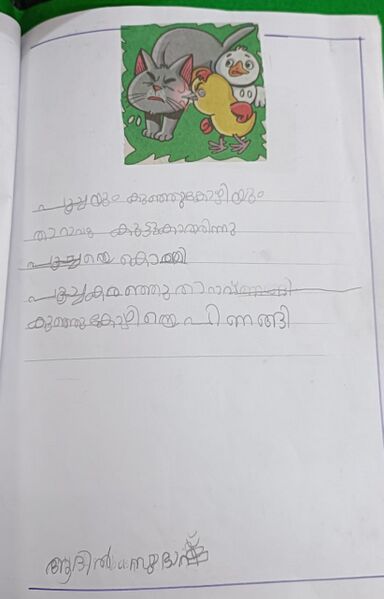 പൂച്ചയും കുഞ്ഞുകോഴിയും
താറാവും കൂട്ടുകാരായിരുന്നു
പൂച്ചയെ കൊത്തി
പൂച്ച കരഞ്ഞു താറാവ്
കുഞ്ഞുകോഴിയെ പിണങ്ങി
ആദിൽ